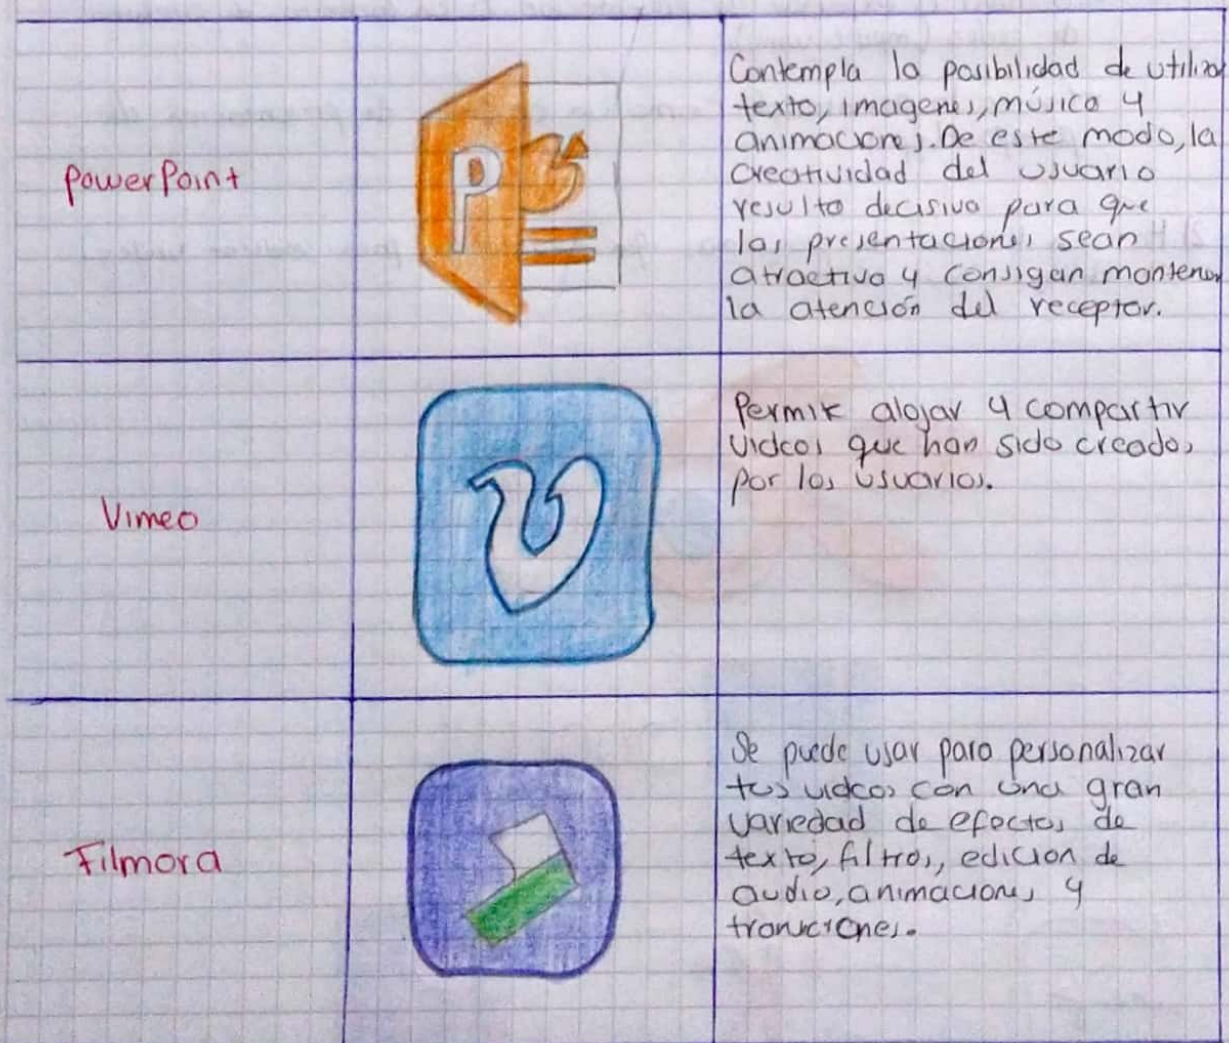 PowerPoint
P
Contempla la posibilidad de utilizar
texto, imagenes, música y
animaciones. De este modo, la
creatividad del usuario
resulta decisivo para que
las presentaciones sean
atractiva y consigan mantener
la atención del receptor.
Vimeo
Permite alojar y compartir
videos que han sido creados
por los usuarios.
Filmora
Se puede usar para personalizar
tus videos con una gran
variedad de efectos de
texto, filtros, edicion de
audio, animaciones y
transiciones.